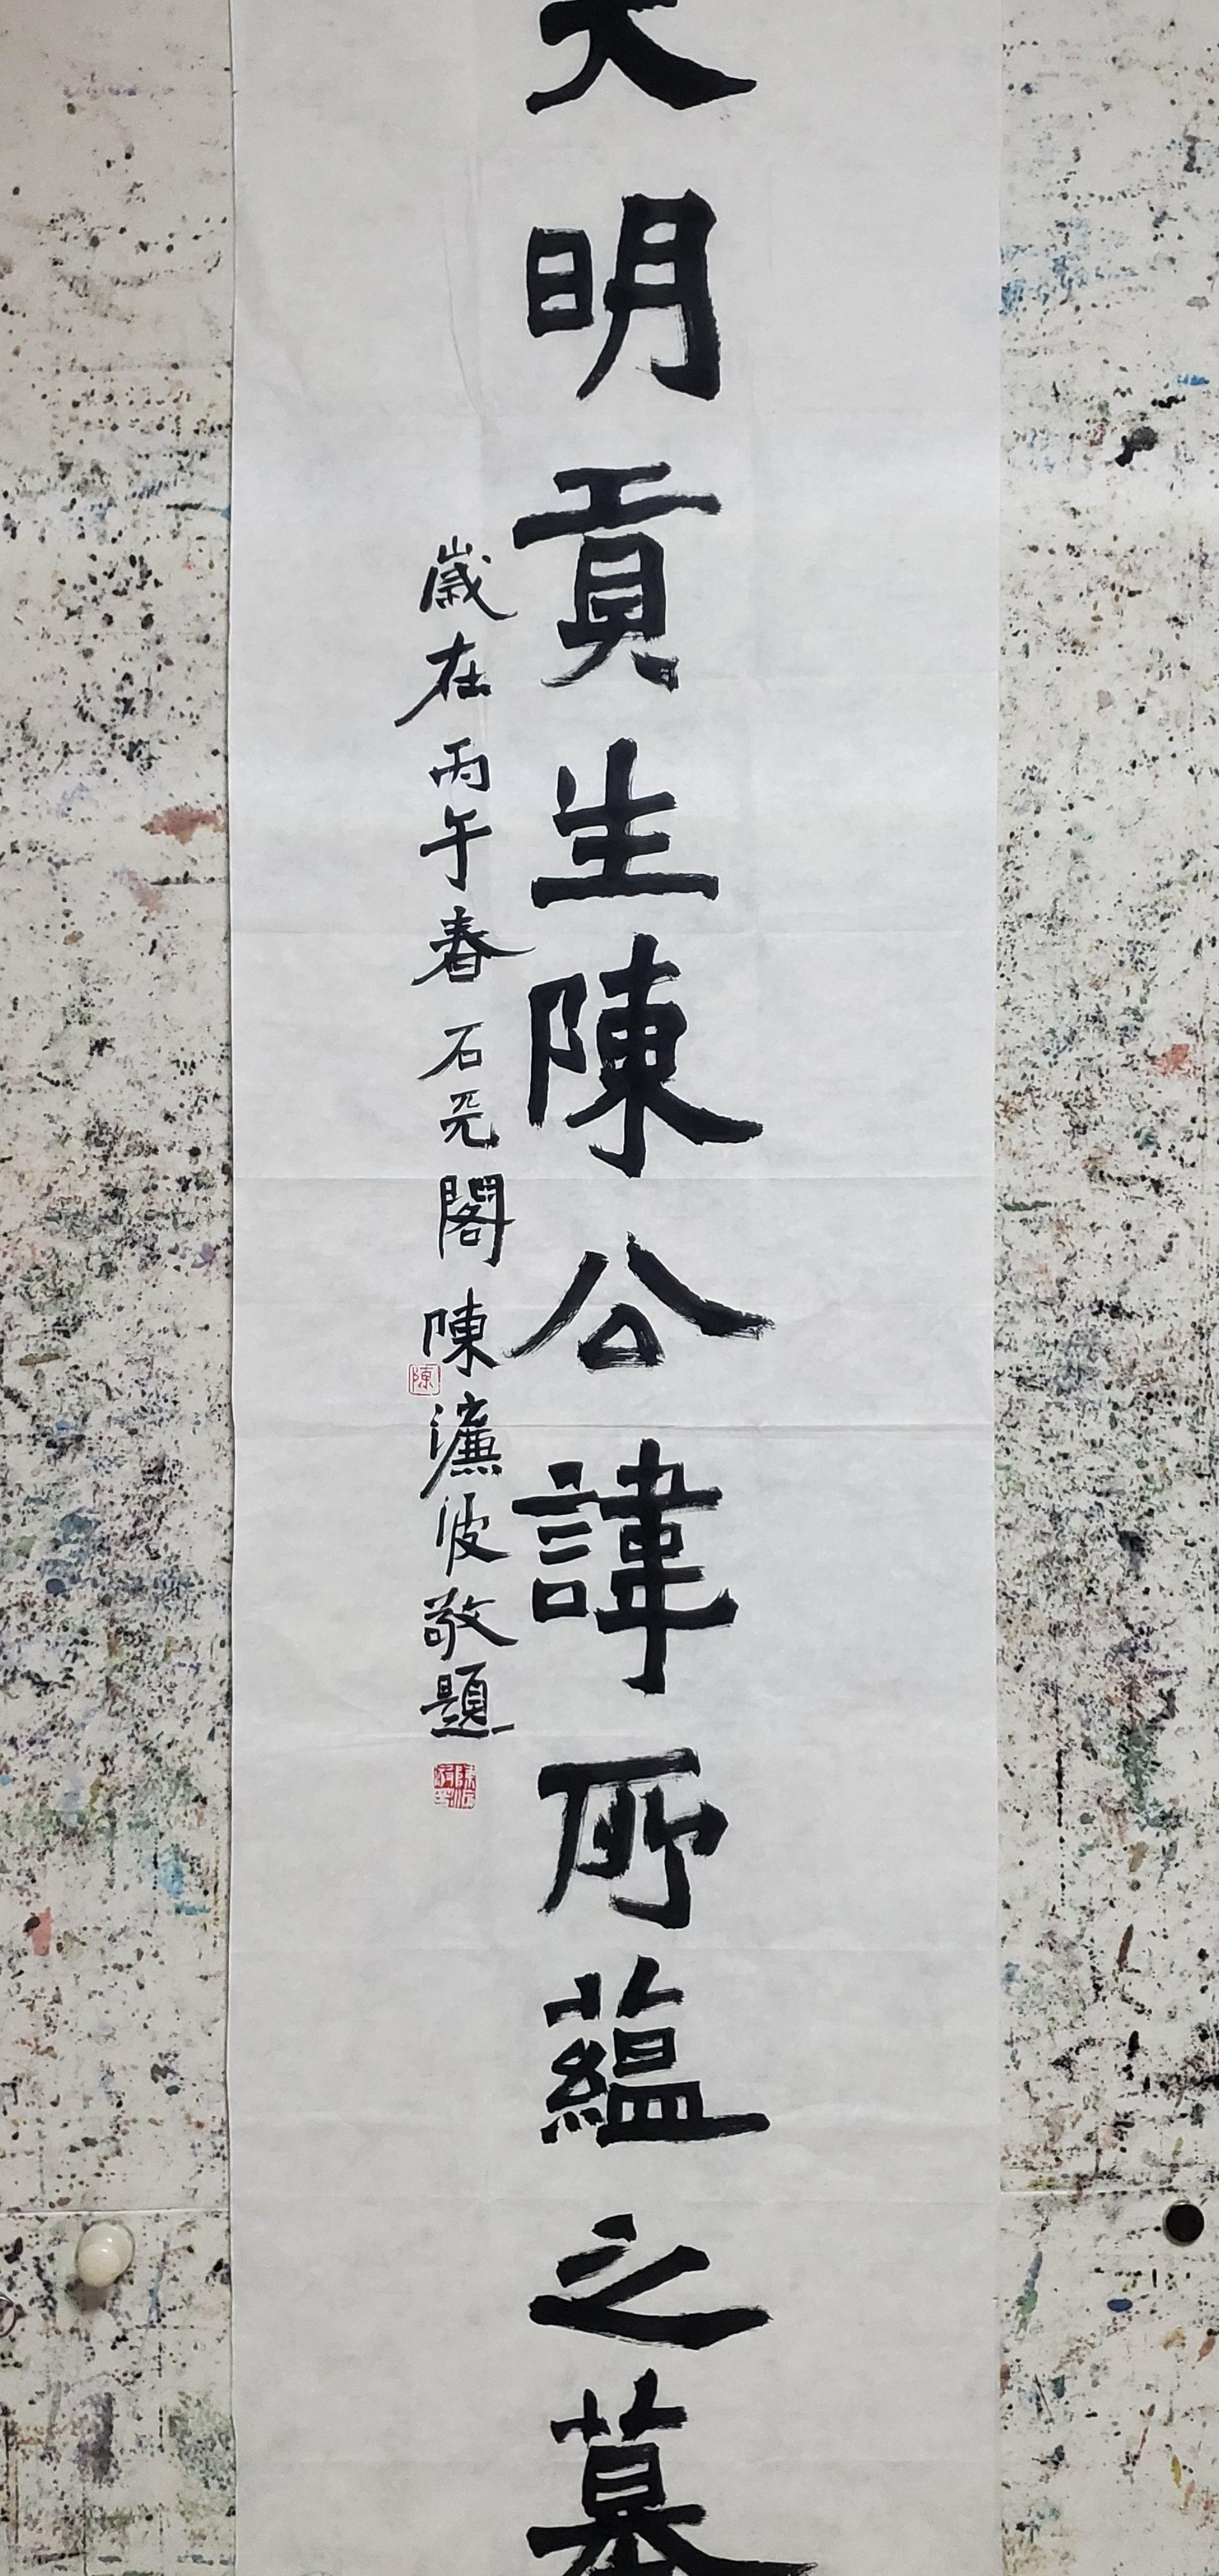 大明貢生陳公諱所蘊之墓
歲在丙午春石元閣陳濂波敬題
陳